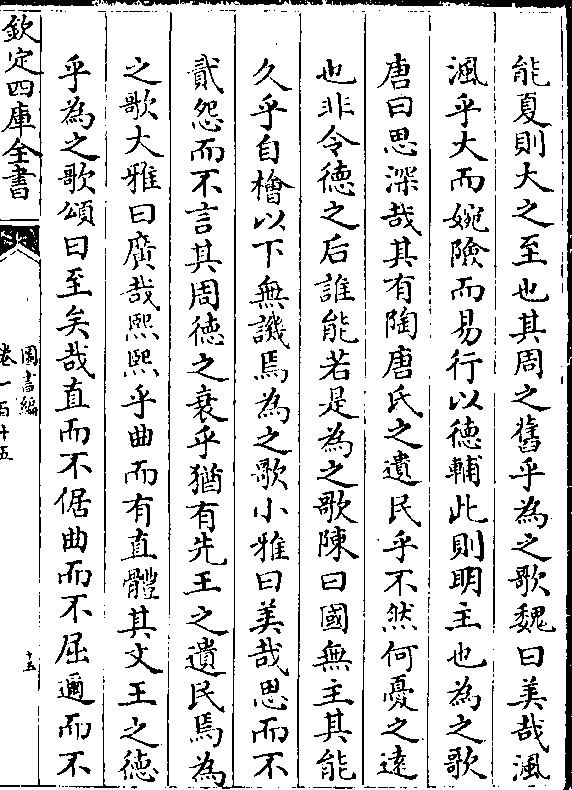 能夏則大之至也其周之舊乎為之歌魏曰美哉渢
渢乎大而婉險而易行以徳輔此則明主也為之歌
唐曰思深哉其有陶唐氏之遺民乎不然何憂之逺
也非令徳之后誰能若是為之歌陳曰國無主其能
久乎自檜以下無譏焉為之歌小雅曰美哉思而不
貳怨而不言其周徳之衰乎猶有先王之遺民焉為
之歌大雅曰廣哉熙熙乎曲而有直體其文王之徳
乎為之歌頌曰至矣哉直而不倨曲而不屈邇而不
欽定四庫全書
圖書編
卷一百十五
十五